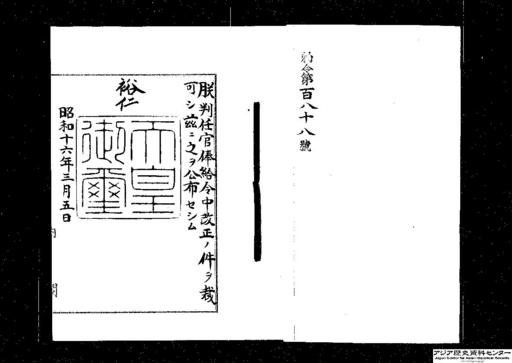 勅令第百八十八號
朕判任官俸給令中改正ノ件ヲ裁
可シ茲ニ之ヲ公布セシム
裕仁
天皇御璽
昭和十六年三月五日
内閣
アジア歴史資料センター
Japan Center for Asian Historical Records